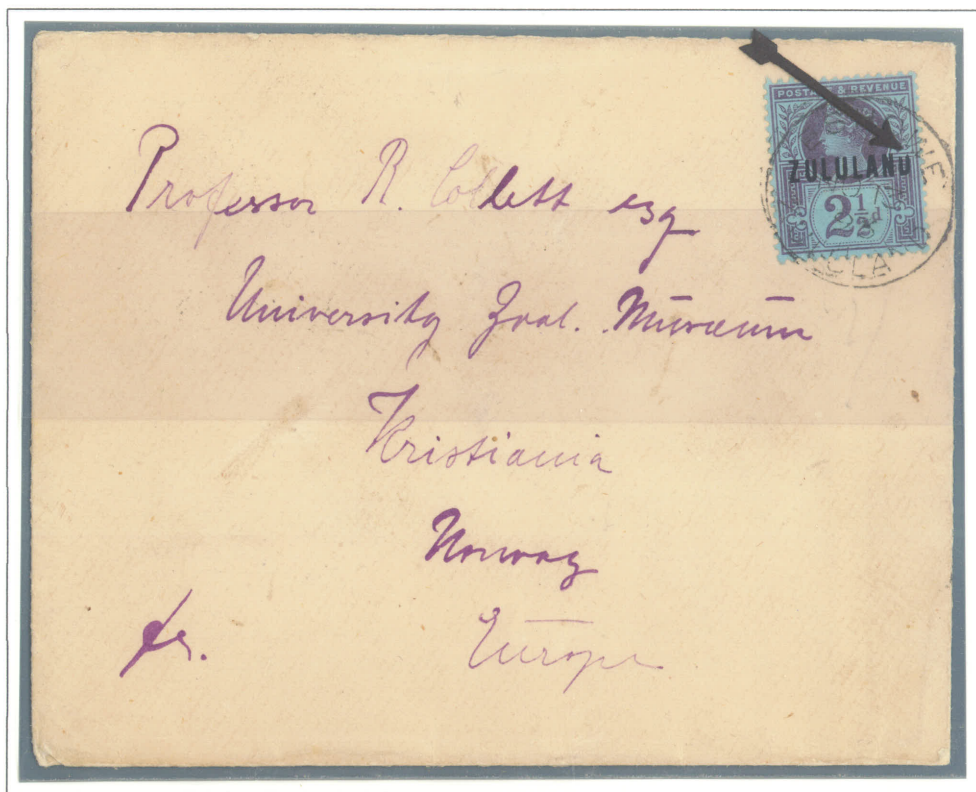 POSTAGE & REVENUE
ZULULAND
2½d
Professor R. Collett esq
University Zool. Musæum
Kristiania
Norway
fr. Europe